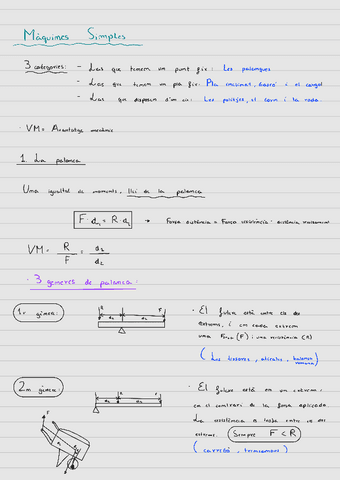 Màquines Simples
3 categories: - Las que tenem un punt fix: Les palanques
- Las que tinem un pla fix: Pla inclinat, falcó i el cargol
- Las que disposen d'un eix: Les politges, el torn i la roda.
· VM= Avantatge mecànic
1. La palanca
Una igualtat de moments, llei de la palanca
F·d₁ = R·d₂ → Força distància = Força resistència · distància
VM= R/F = d₁/d₂
· 3 generes de palanca:
1r gènere:
R F
d₂ d₁
· El fulcre està entre els dos
extrems, i en cada extrem
una Força (F) i una resistència (R)
( Les tisores, alicates, balança romana )
2n gènere:
· El fulcre està en un extrem,
en el contrari de la força aplicada.
La resistència es troba entre els dos
extrems. Sempre F < R
( carretó, trencanous )
F
R